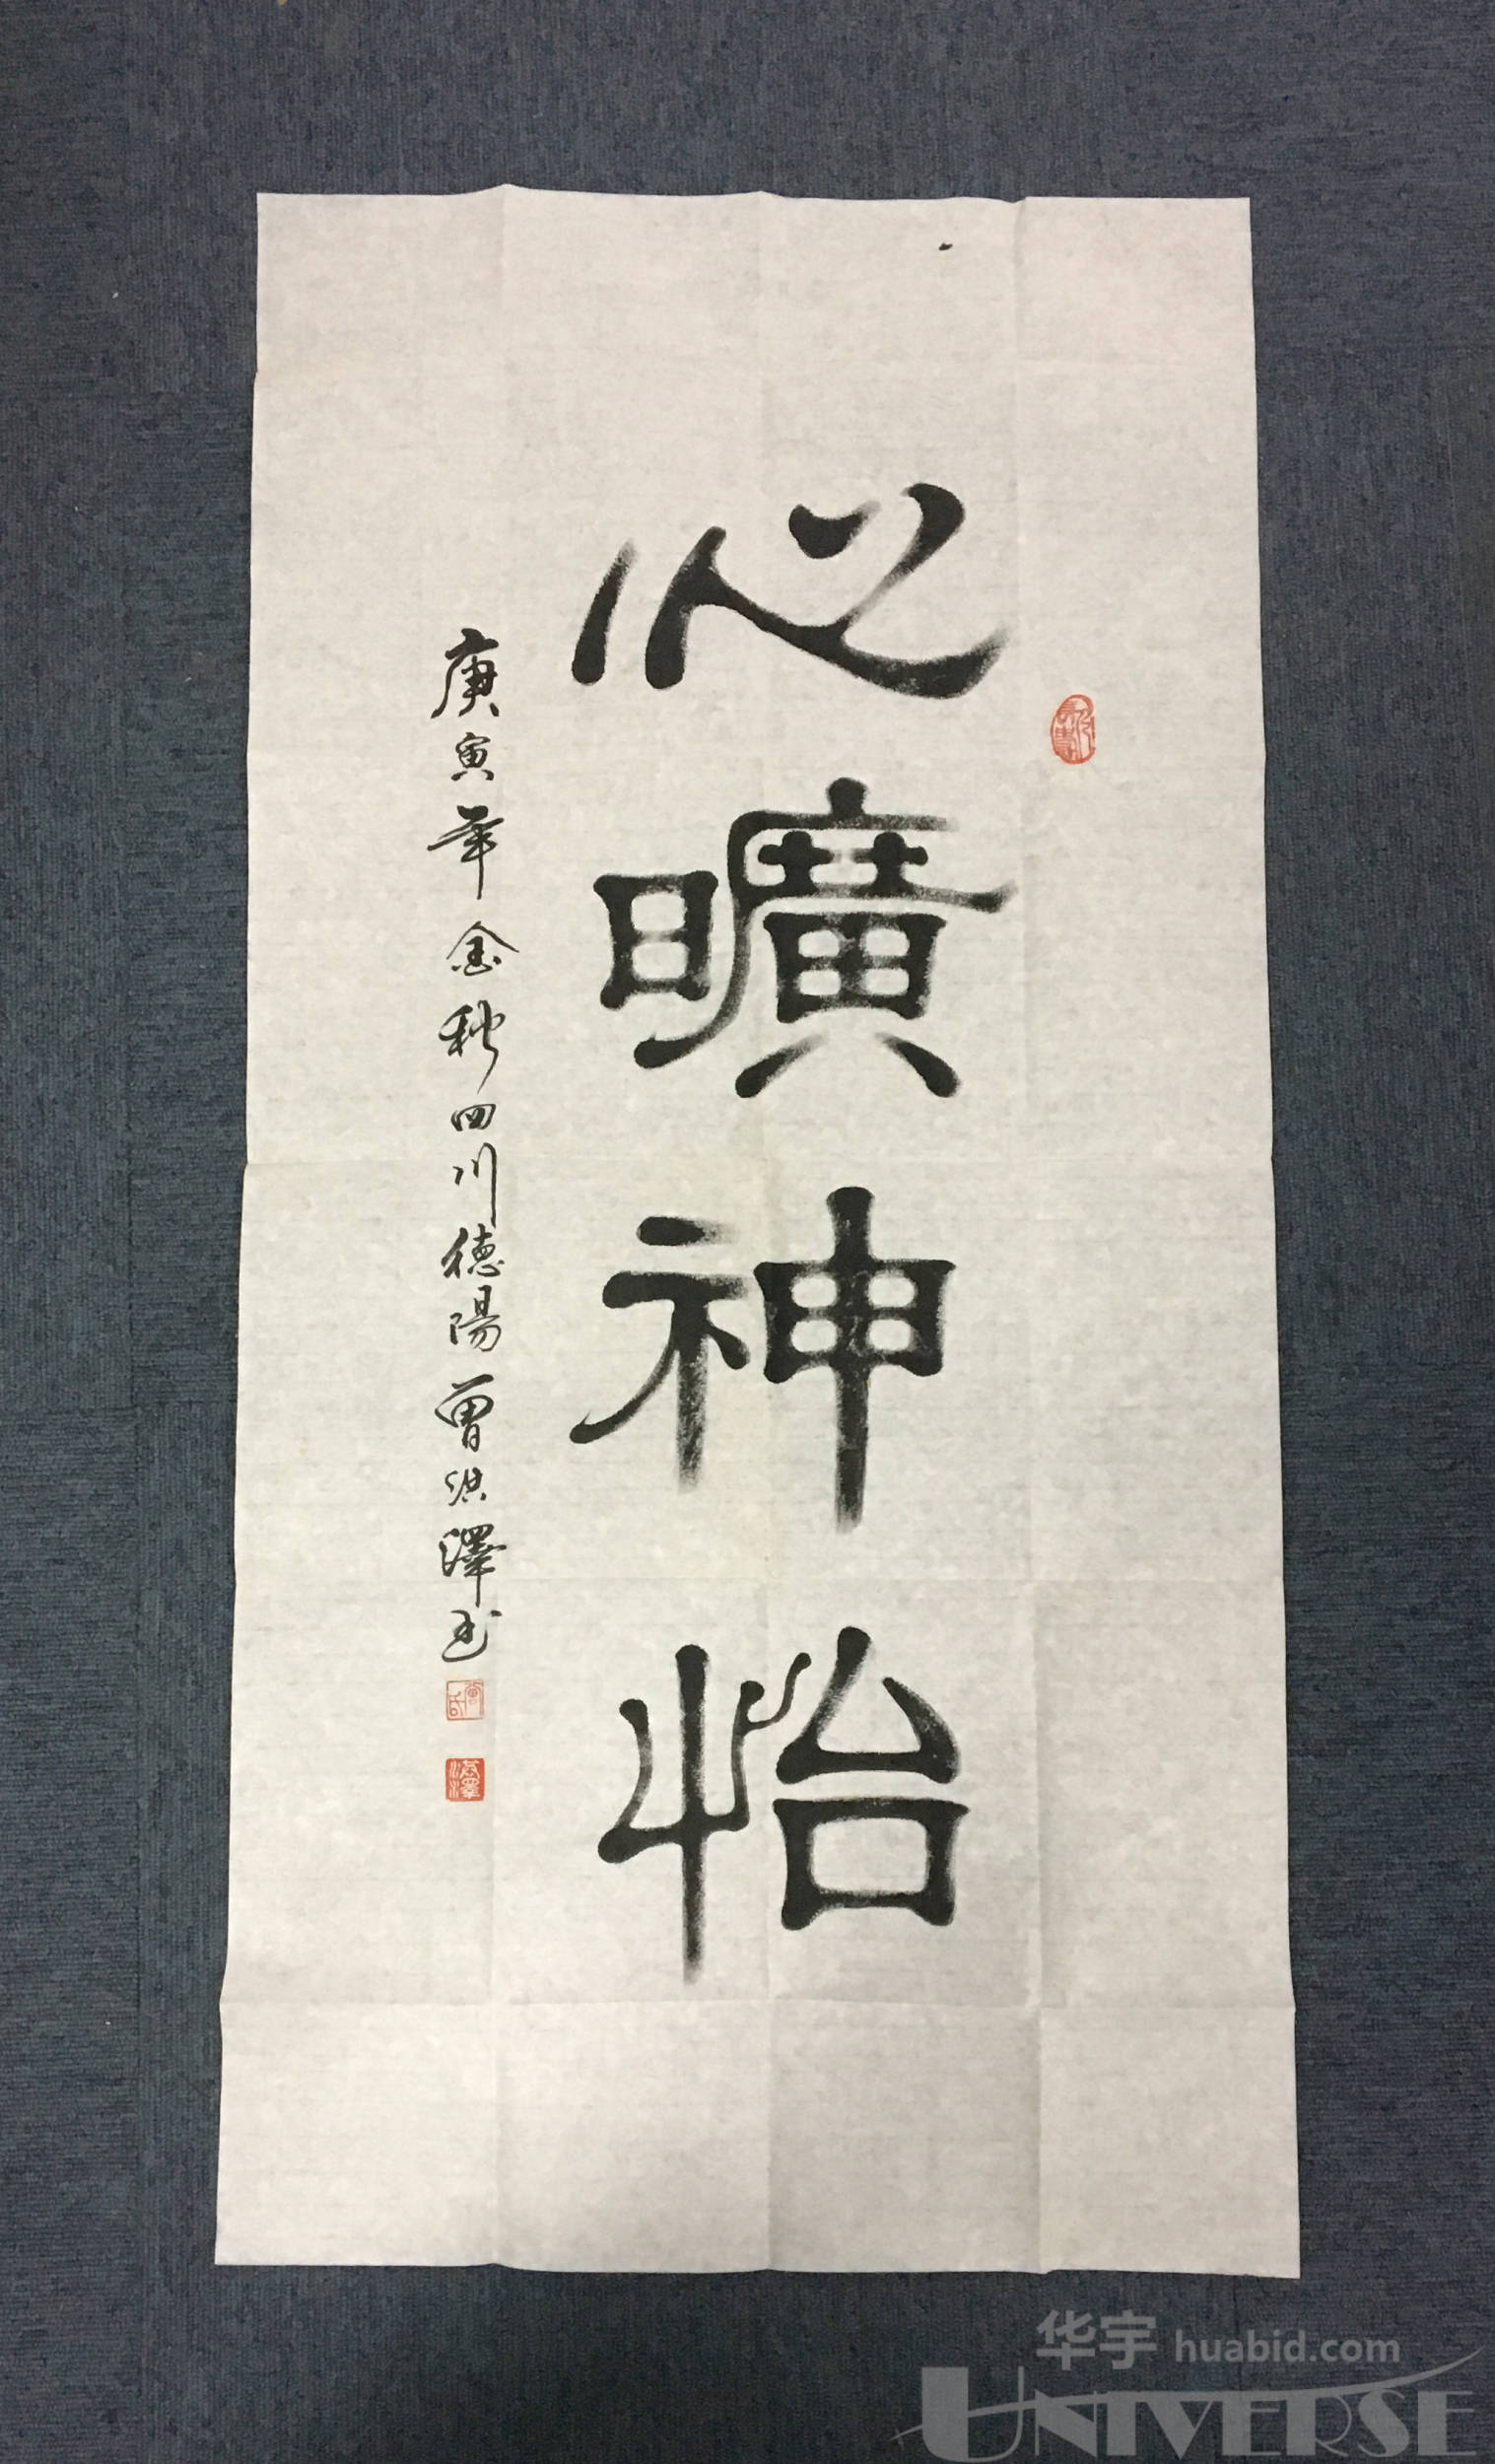 心曠神怡
庚寅年金秋四川德陽曾洪澤书
华宇 huabid.com
UNIVERSE